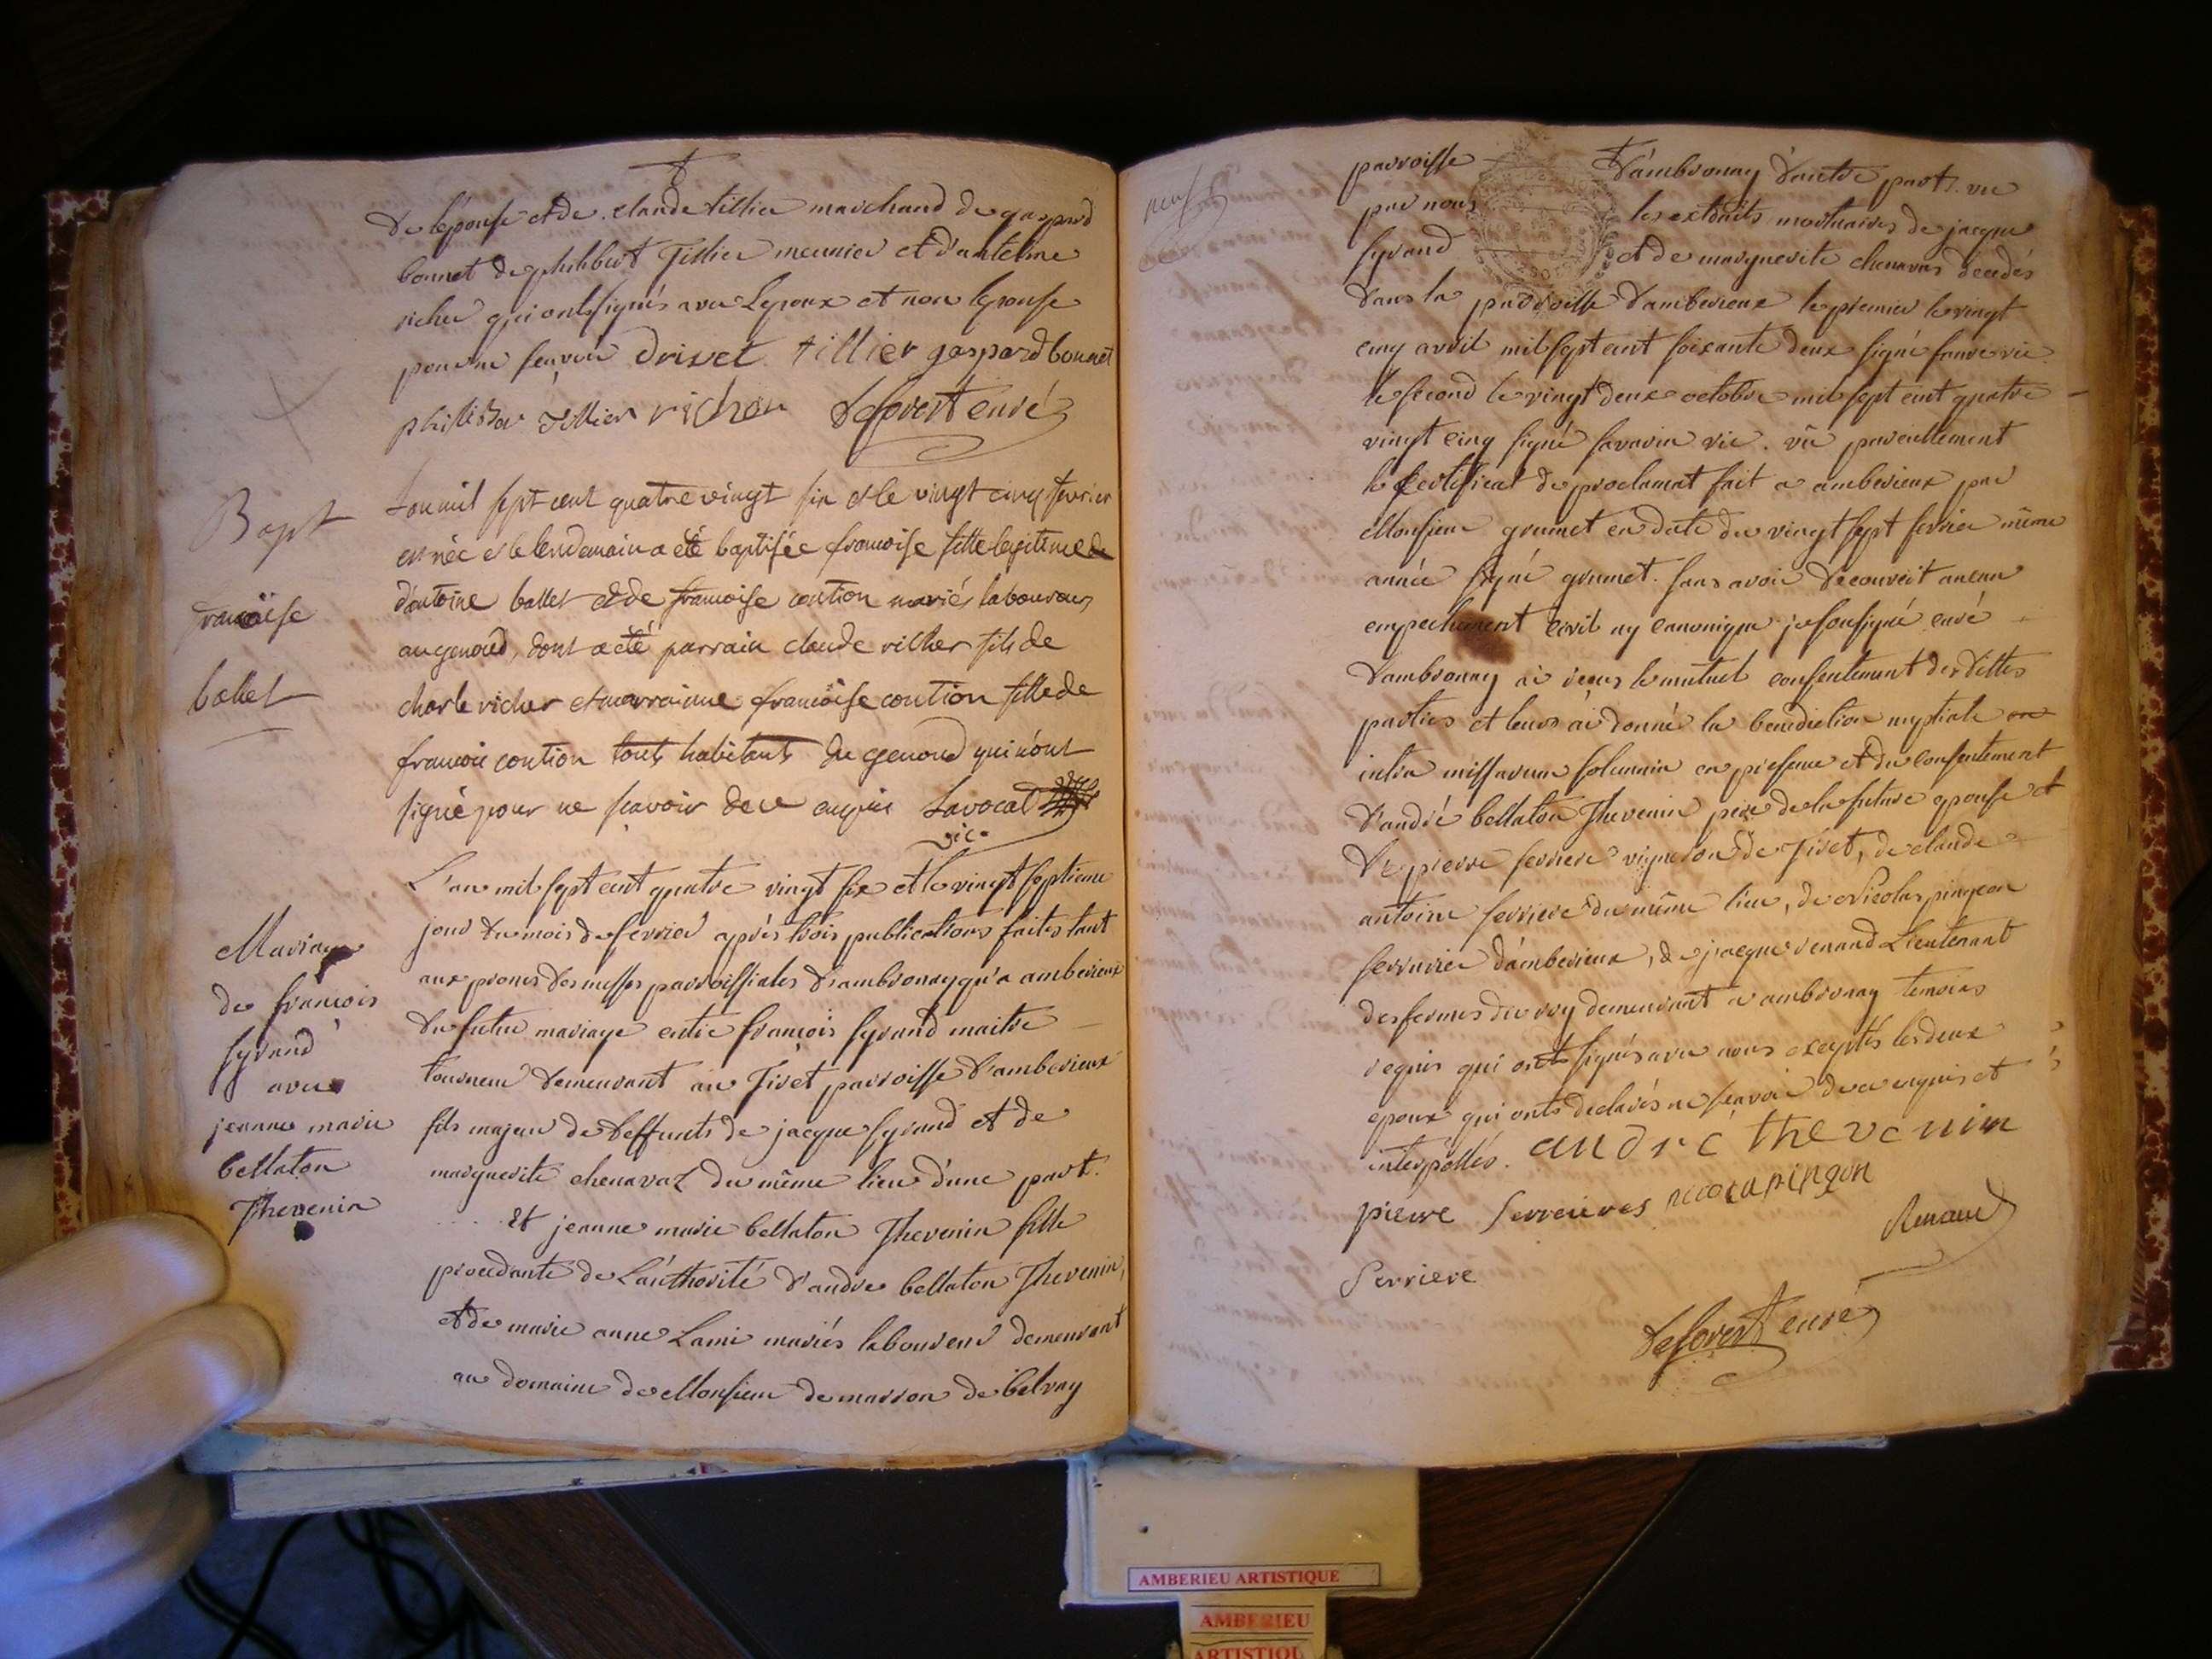 de l'épouse et de claude tillier marchand de gaspard
bonnet de philibert Tillier meunier et d'antelme
richer qui ont signés avec Lepoux et non lepouse
pour ne sçavoir drivet tillier gaspard bonnet
tillier richer curé
Bapt
françoise
ballet
Lan mil sept cent quatre vingt six et le vingt cinq fevrier
est née et le lendemain a été baptisée francoise fille legitime de
d'antoine ballet et de francoise contion mariés laboureurs
au genoud, dont a été parrain claude richer fils de
charle richer et marrainne francoise contion fille de
francois contion touts habitants du genoud qui n'ont
signé pour ne scavoir de ce enquis Lavocat
vic.
Mariage
de francois
syrand
avec
jeanne marie
bellaton
Thevenin
L'an mil sept cent quatre vingt six et le vingt septieme
jour du mois de fevrier après trois publications faites tant
aux prones des messes parroissiales d'ambronay qu'a amberieux
du futur mariage entre françois syrand maitre
tourneur demeurant au Tiret parroisse d'amberieux
fils majeur de deffunts de jacque syrand et de
marguerite chenavaz du même lieu d'une part.
et jeanne marie bellaton Thevenin fille
procedante de L'authorité d'andre bellaton Thevenin,
et de marie anne Lami mariés laboureur demeurant
au domaine de Monsieur de marron de belvay
neuf
parroisse d'ambronay d'autre part. vu
par nous les extraits mortuaires de jacque
syrand et de marguerite chenavas decedés
dans la parroisse d'amberieux le premier le vingt
cinq avril mil sept cent soixante deux signé vic.
le second le vingt deux octobre mil sept cent quatre
vingt cinq signé savarin vic. vû pareillement
le certificat de proclamat fait a amberieux par
Monsieur grumet en date du vingt sept fevrier même
année signé grumet. sans avoir decouvert aucun
empechement civil ny canonique je soussigné curé
d'ambronay ai reçus le mutuel consentement desdittes
parties et leurs ai donné la benediction nuptiale
intra missarum solemnia en presence et du consentement
d'andré bellaton Thevenin pere de la future epouse et
de pierre ferriere vigneron de Tiret, de claude
antoine ferriere du même lieu, de Nicolas pingeon
serrurier d'amberieux, de jacque renaud Lieutenant
des fermes du roy demeurant a ambronay temoins
requis qui ont signés avec nous exceptés les deux
epoux qui onts declarés ne sçavoir de ce enquis et
interpellés. andré thevenin
pierre ferrieres pingon
Renaud
ferriere
curé
AMBERIEU ARTISTIQUE
AMBERIEU
ARTISTIQU